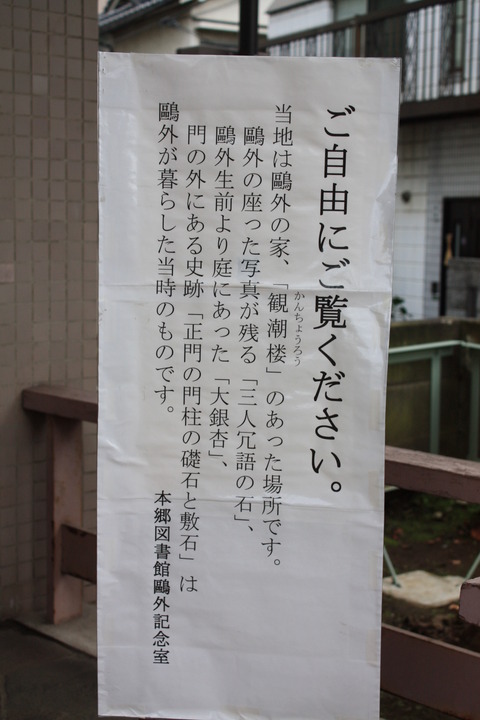 ご自由にご覧ください。
当地は鷗外の家、「観潮楼」のあった場所です。
かんちょうろう
鷗外の座った写真が残る「三人冗語の石」、
鷗外生前より庭にあった「大銀杏」、
門の外にある史跡「正門の門柱の礎石と敷石」は
鷗外が暮らした当時のものです。
本郷図書館鷗外記念室